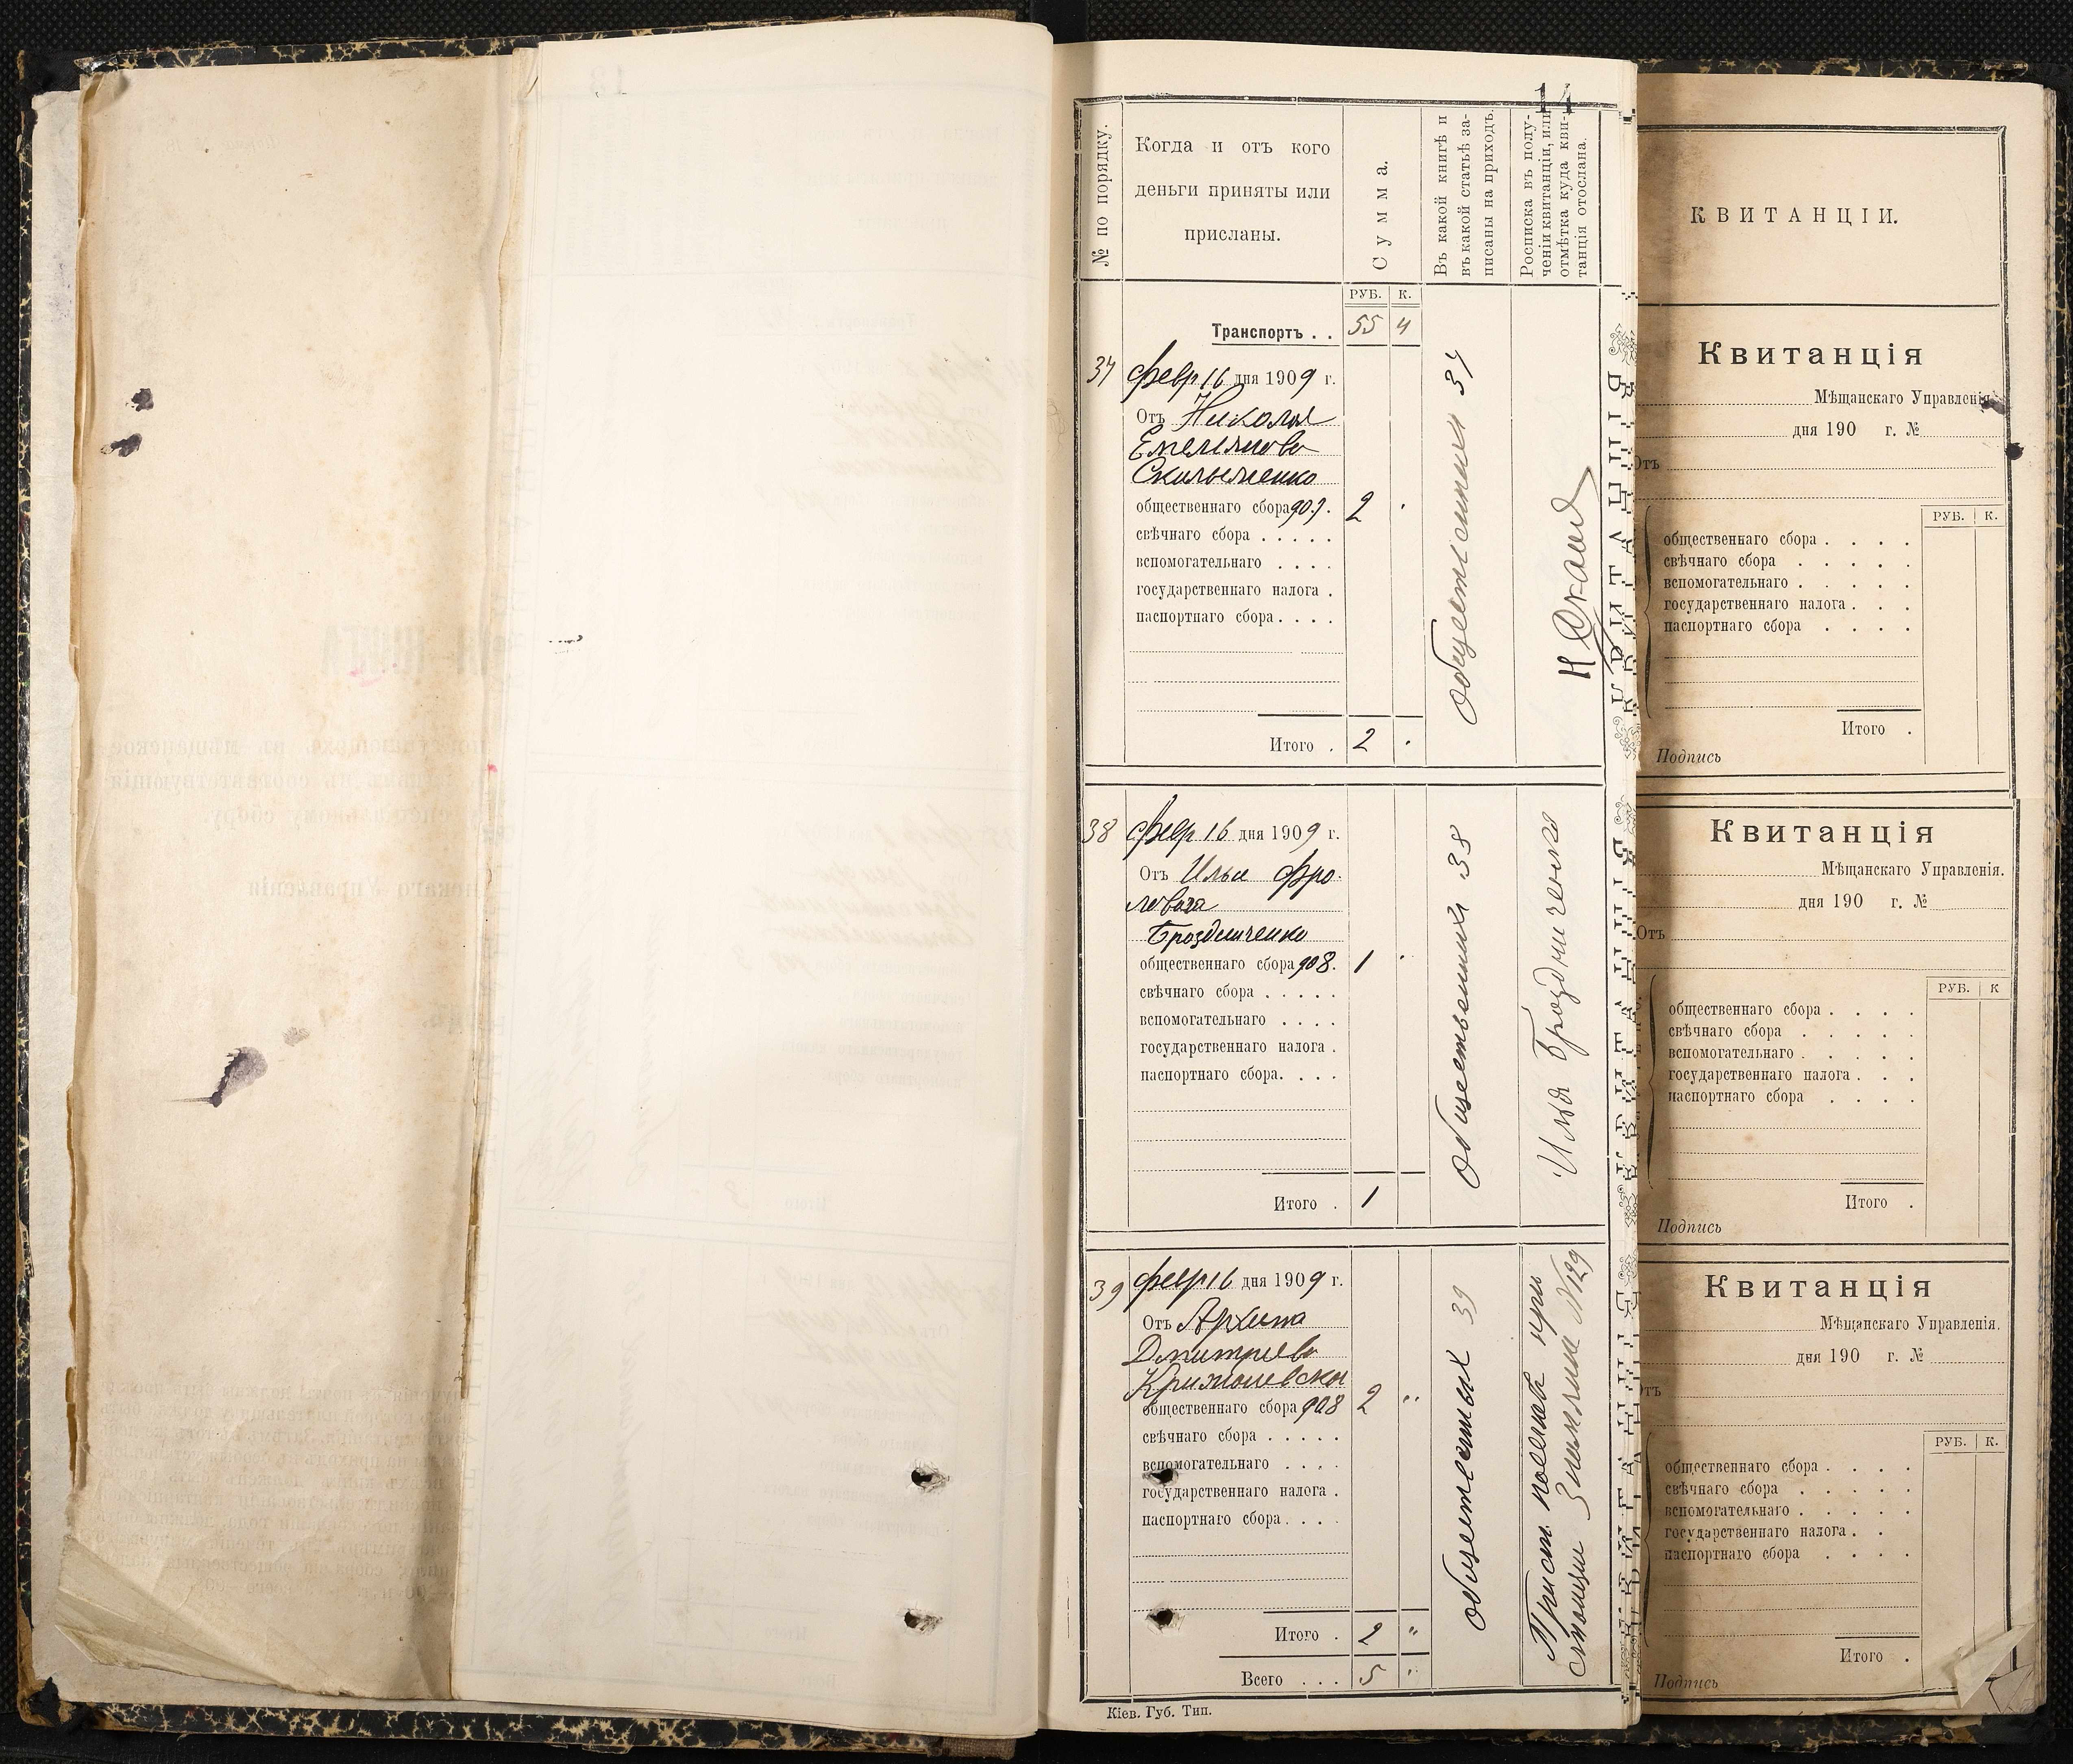 14
№ по порядку.
Когда и отъ кого
деньги приняты или
присланы.
Сумма.
Въ какой книгѣ и
въ какой статьѣ за-
писаны на приходъ.
Росписка въ полу-
ченіи квитанціи, или
отмѣтка куда кви-
танція отослана.
РУБ. К.
Транспортъ . . 55 4
37 февр 16 дня 1909 г.
Отъ Николая
Емельянова
общественнаго сбора 907. 2
свѣчнаго сбора . . . . .
вспомогательнаго . . . .
государственнаго налога .
паспортнаго сбора . . . .
Итого . 2
37
38 февр 16 дня 1909 г.
Отъ Ильи Фро-
лова
Броздниченко
общественнаго сбора 908. 1
свѣчнаго сбора . . . . .
вспомогательнаго . . . .
государственнаго налога .
паспортнаго сбора. . . .
Итого . 1
Общественныхъ 38
Илья Броздниченко
39 февр 16 дня 1909 г.
Отъ Архипа
Дмитріева
общественнаго сбора 908 2 "
свѣчнаго сбора . . . . .
вспомогательнаго . . . .
государственнаго налога .
паспортнаго сбора . . . .
Итого . 2 "
Всего . . . 5 "
общественныхъ 39
при
№129
Кіев. Губ. Тип.
КВИТАНЦІИ.
Квитанція
Мѣщанскаго Управленія
дня 190 г. №
Отъ
РУБ. К.
общественнаго сбора . . . .
свѣчнаго сбора . . . . .
вспомогательнаго . . . . .
государственнаго налога . . .
паспортнаго сбора . . . .
Итого .
Подпись
Квитанція
Мѣщанскаго Управленія.
дня 190 г. №
Отъ
РУБ. К
общественнаго сбора . . . .
свѣчнаго сбора . . . . .
вспомогательнаго . . . . .
государственнаго налога . . .
паспортнаго сбора . . . .
Итого .
Подпись
Квитанція
Мѣщанскаго Управленія.
дня 190 г. №
Отъ
РУБ. К.
общественнаго сбора . . . .
свѣчнаго сбора . . . . .
вспомогательнаго . . . . .
государственнаго налога . .
паспортнаго сбора . . . .
Итого .
Подпись